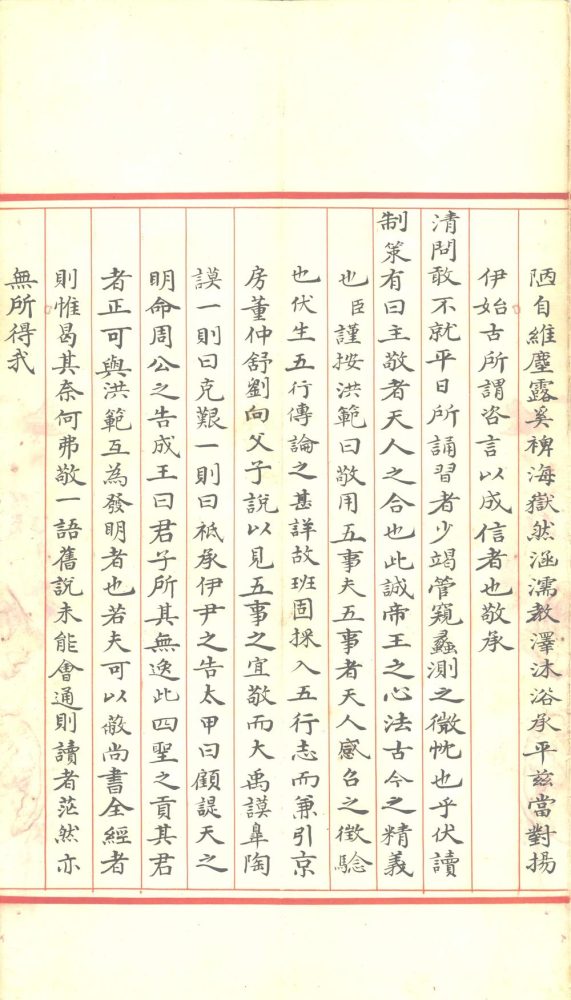 陋自維塵露奚裨海嶽然涵濡教澤沐浴承平茲當對揚
伊始古所謂咨言以成信者也敬承
清問敢不就平日所誦習者少竭管窺蠡測之微忱也乎伏讀
制策有曰主敬者天人之合也此誠帝王之心法古今之精義
也臣謹按洪範曰敬用五事夫五事者天人感召之徵驗
也伏生五行傳論之甚詳故班固採入五行志而兼引京
房董仲舒劉向父子說以見五事之宜敬而大禹謨臯陶
謨一則曰克艱一則曰祗承伊尹之告太甲曰顧諟天之
明命周公之告成王曰君子所其無逸此四聖之貢其君
者正可與洪範互為發明者也若夫可以蔽尚書全經者
則惟曷其奈何弗敬一語舊說未能會通則讀者茫然亦
無所得矣